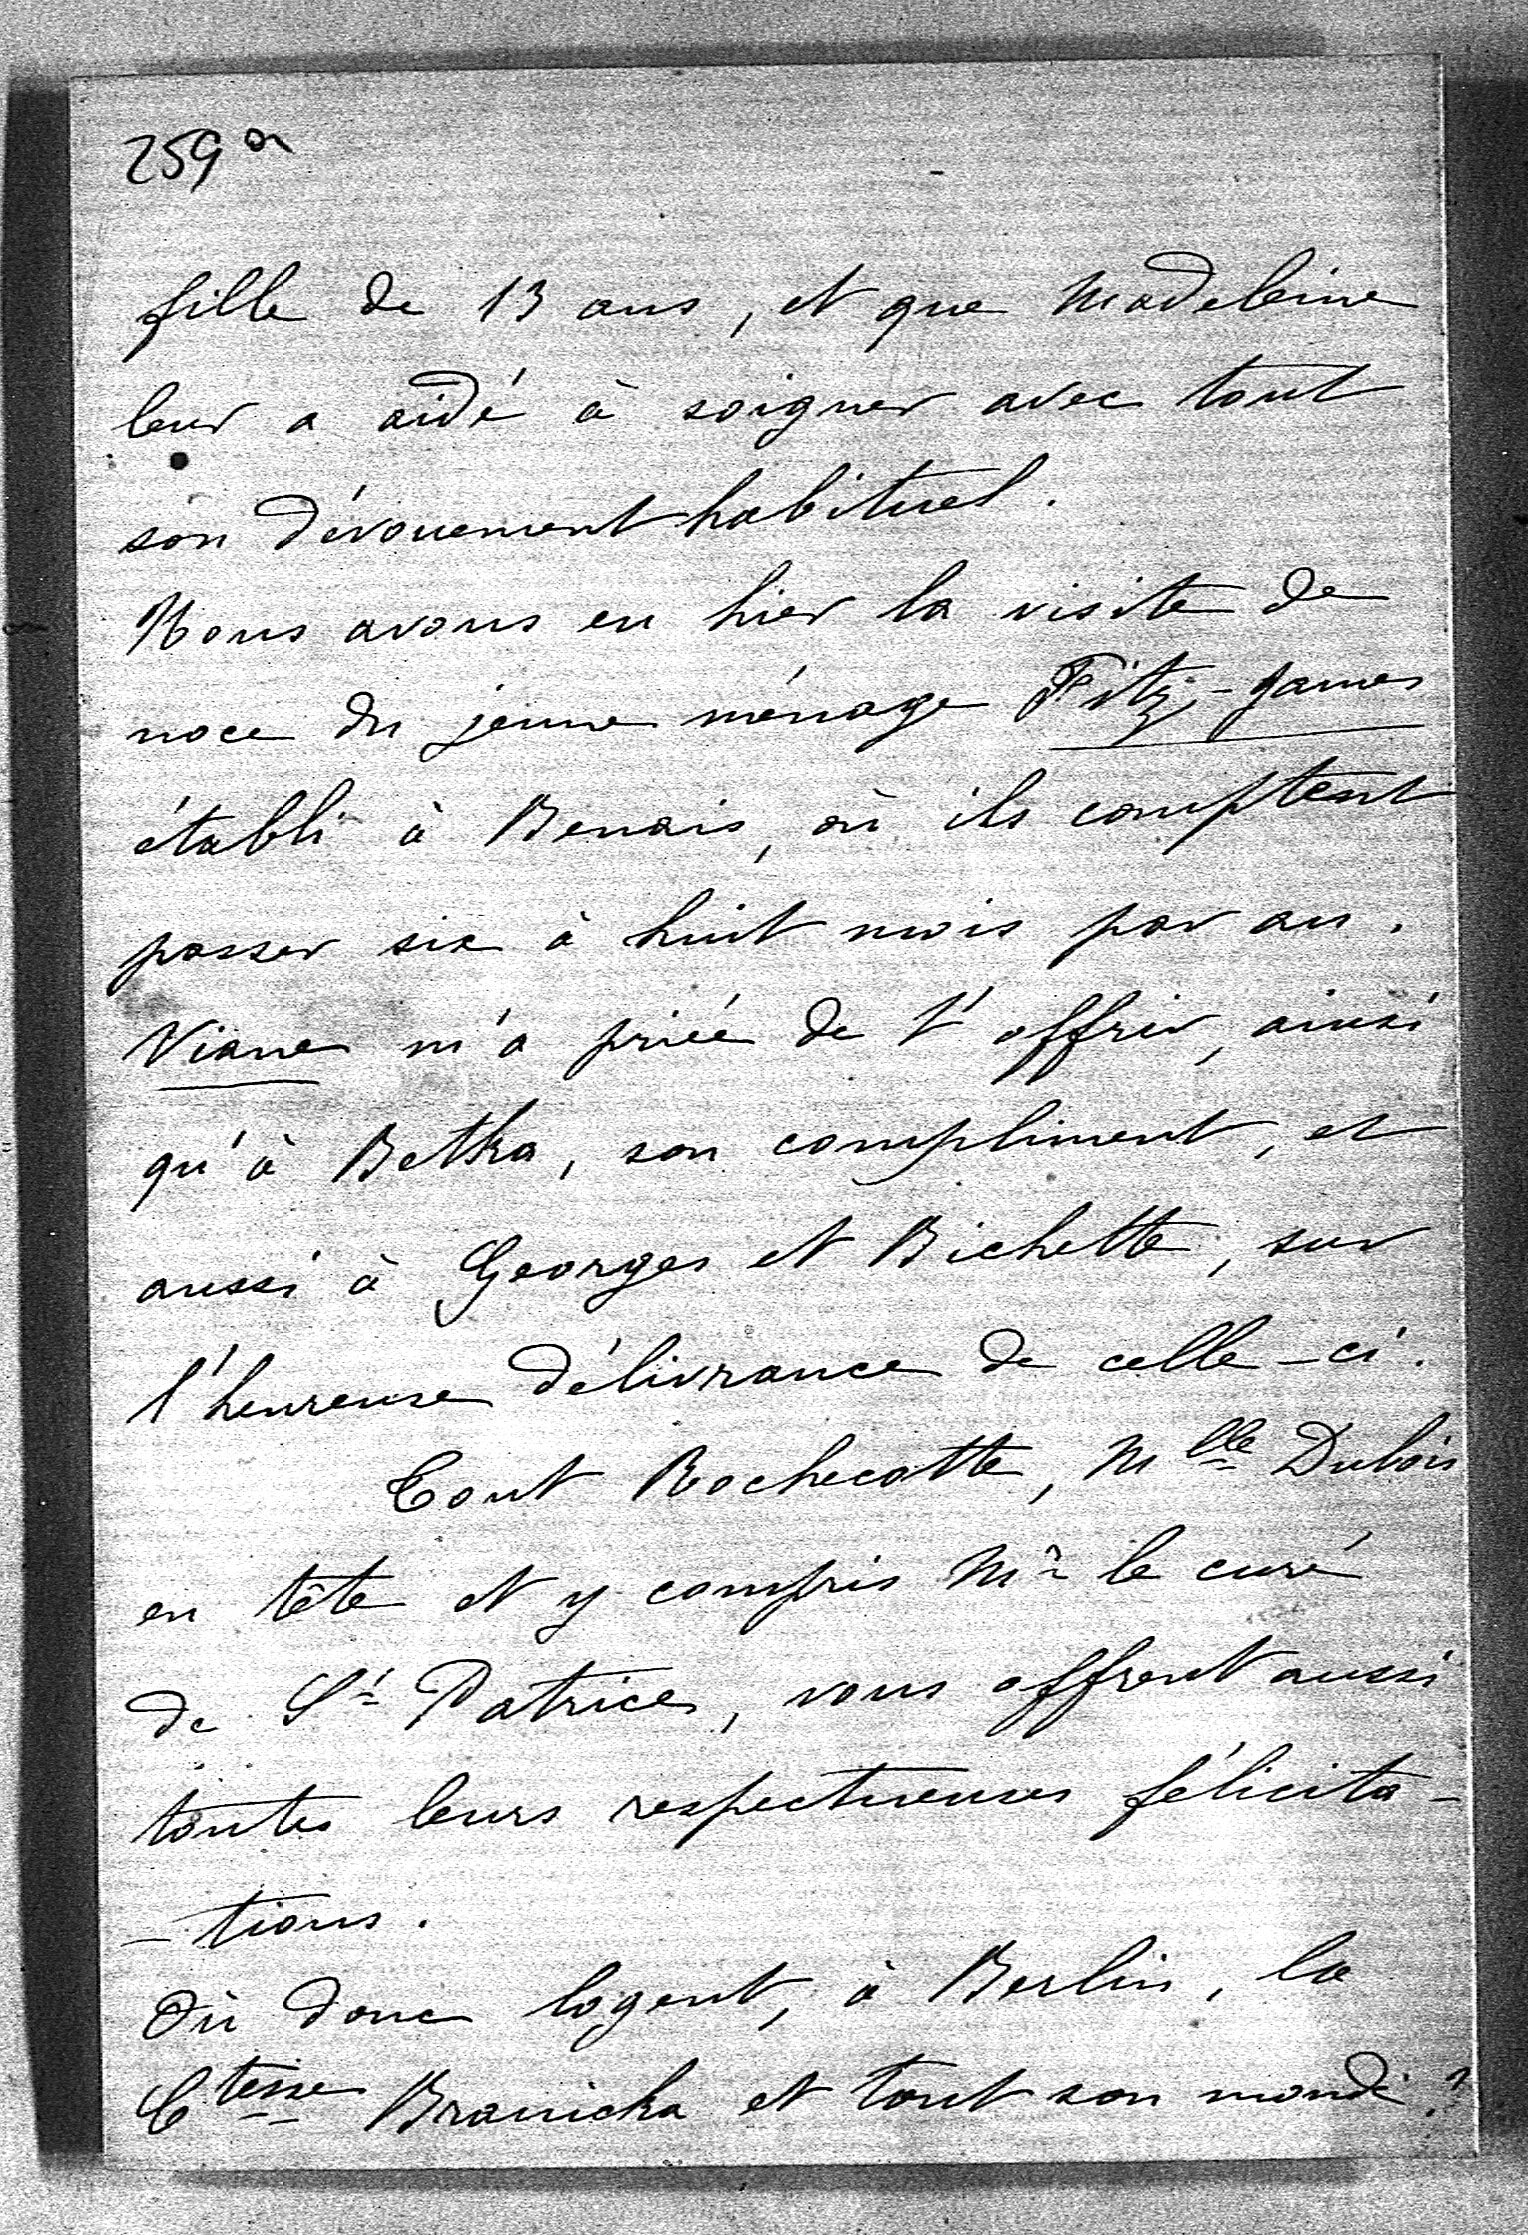 259 a
fille de 13 ans, et que Madeleine
leur a aidé à soigner avec tout
son dévouement habituel.
Nous avons eu hier la visite de
noce du jeune ménage Fitz-James
établi à Benais, où ils comptent
passer six à huit mois par an.
Viane m'a priée de t'offrir, ainsi
qu'à Betka, son compliment, et
aussi à Georges et Bichette, sur
l'heureuse délivrance de celle-ci.
Tout Rochecotte, Mlle Dubois
en tête et y compris Mr le curé
de St Patrice, vous offrent aussi
toutes leurs respectueuses félicita-
-tions.
Où donc logent, à Berlin, la
Ctesse Branicka et tout son monde?